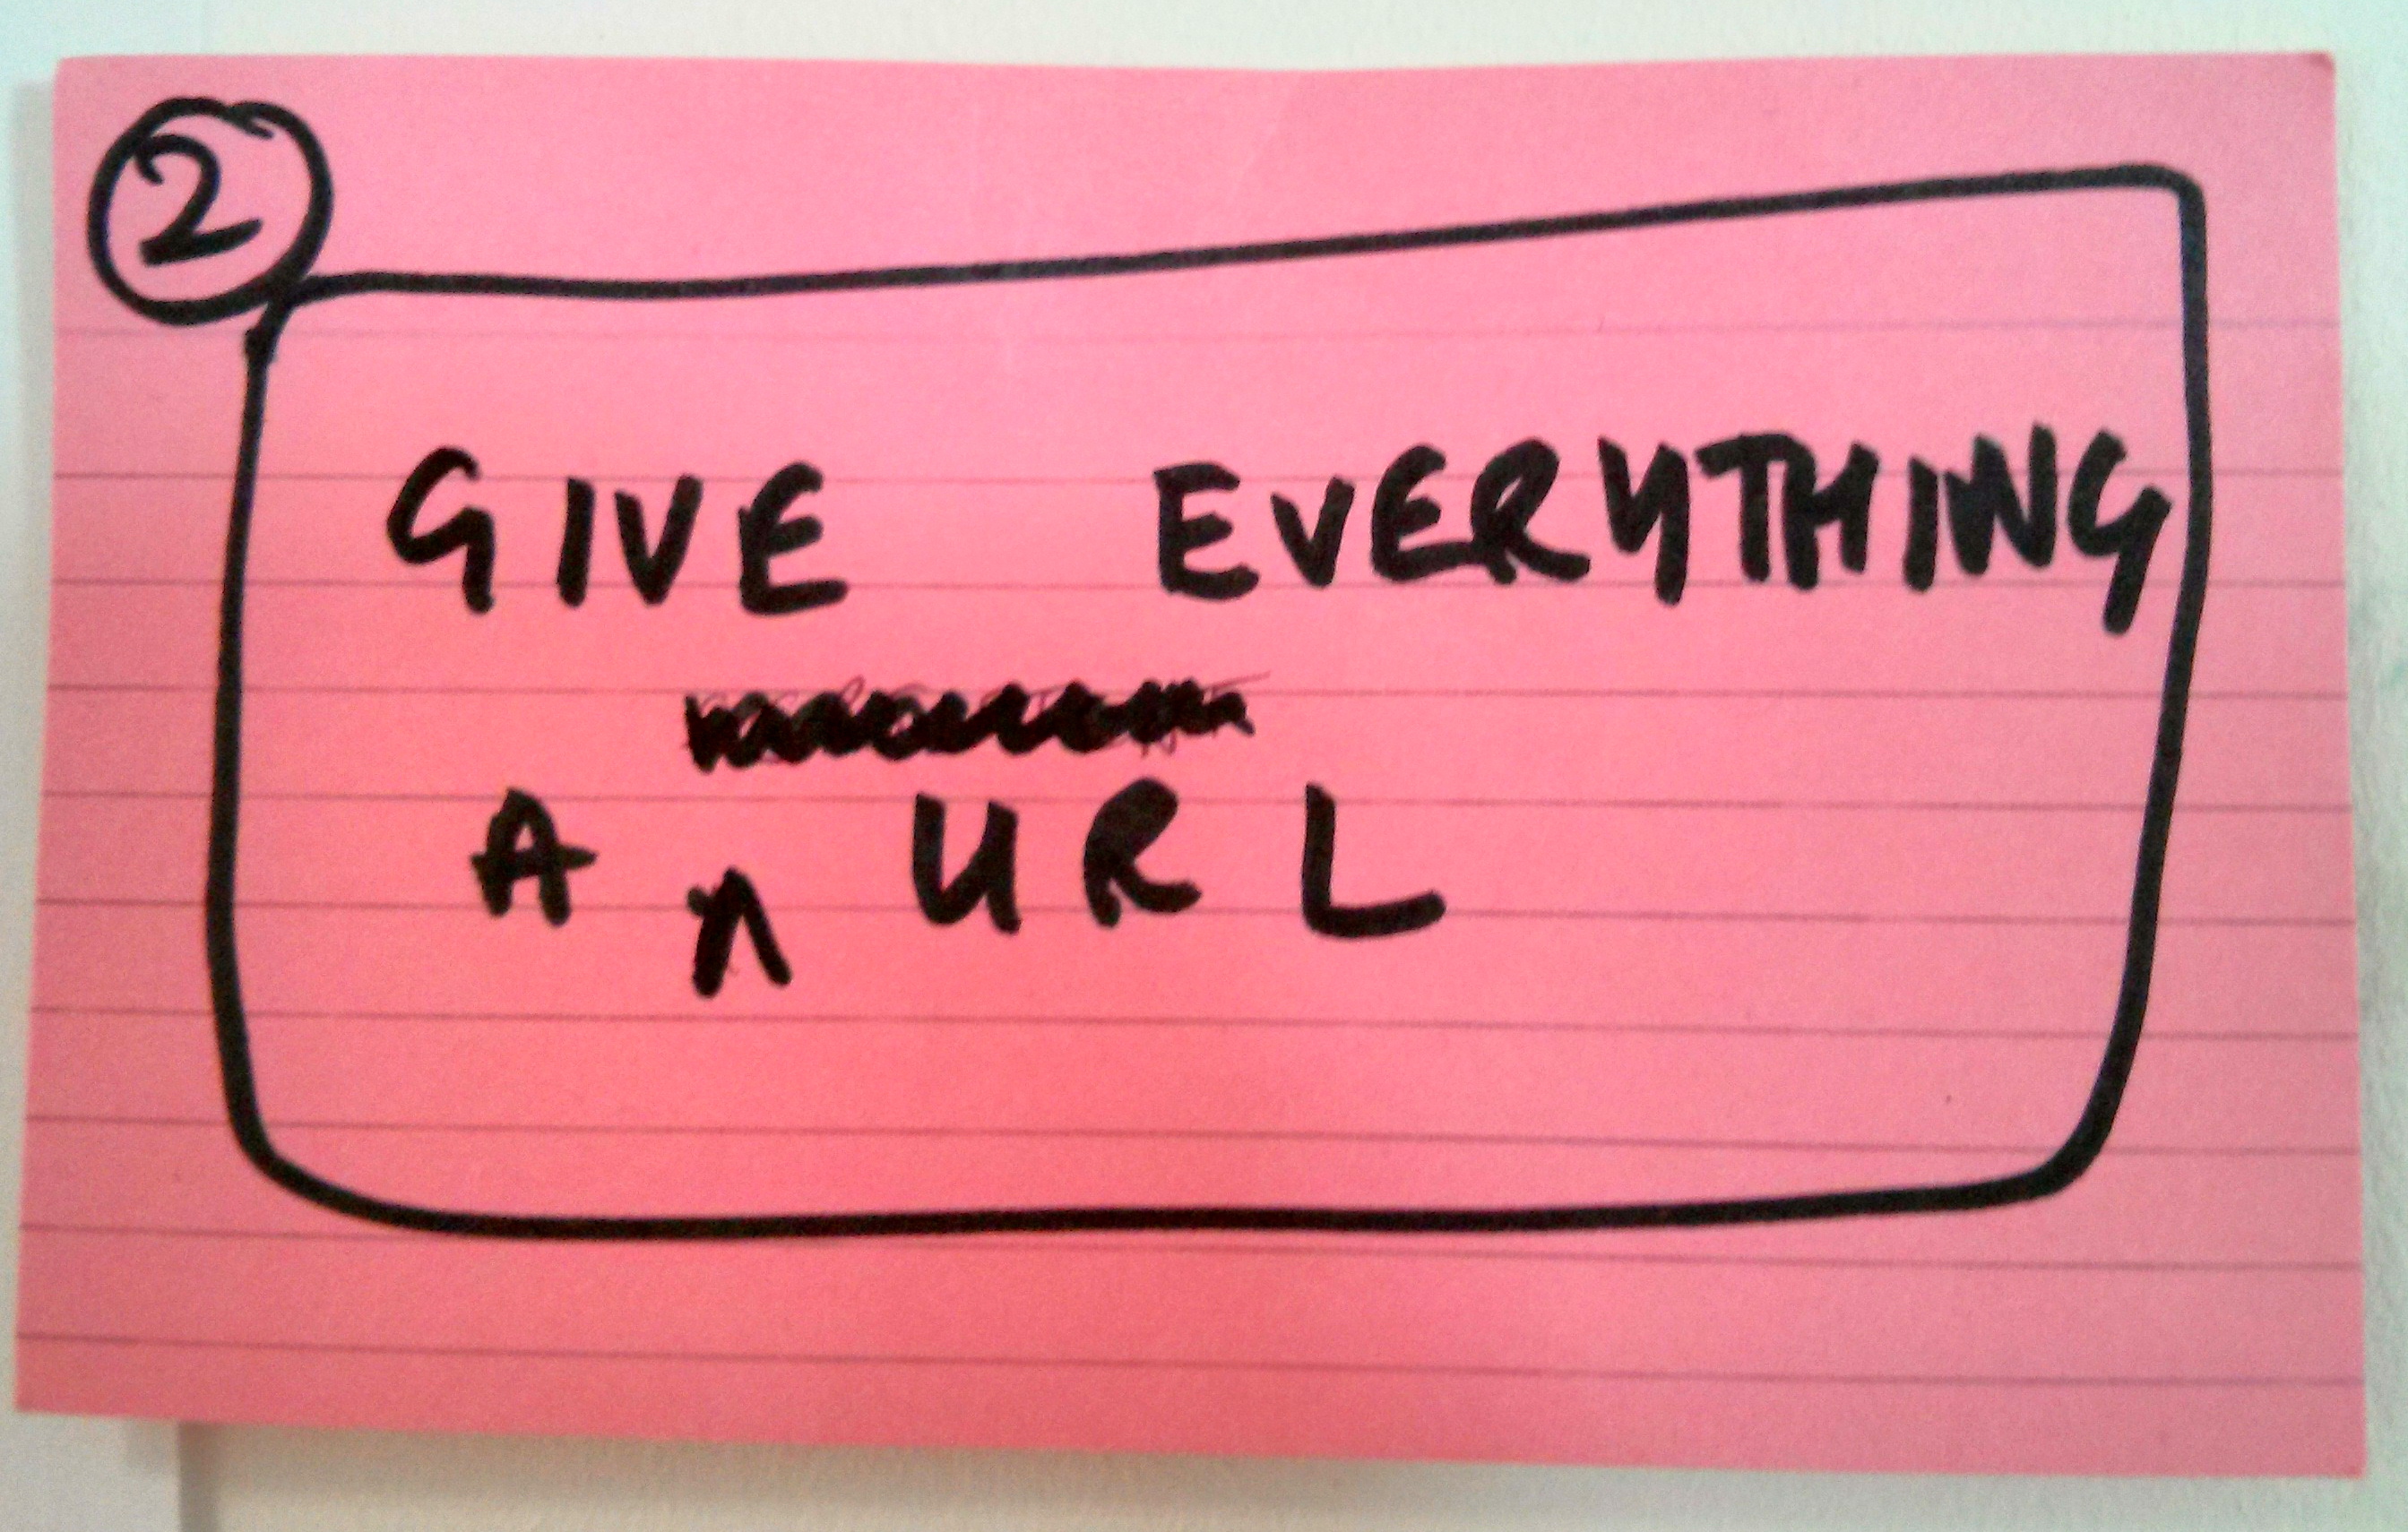 2
GIVE EVERYTHING
A ^ URL